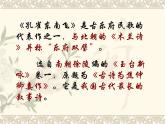 《孔雀东南飞》是古乐府民歌的
代表作之一，与北朝的《木兰诗
》并称“乐府双璧”。
选自南朝徐陵编的《玉台新
咏》卷一。原题为《古诗为焦仲
卿妻作》。它是我国古代最长的
叙事诗。